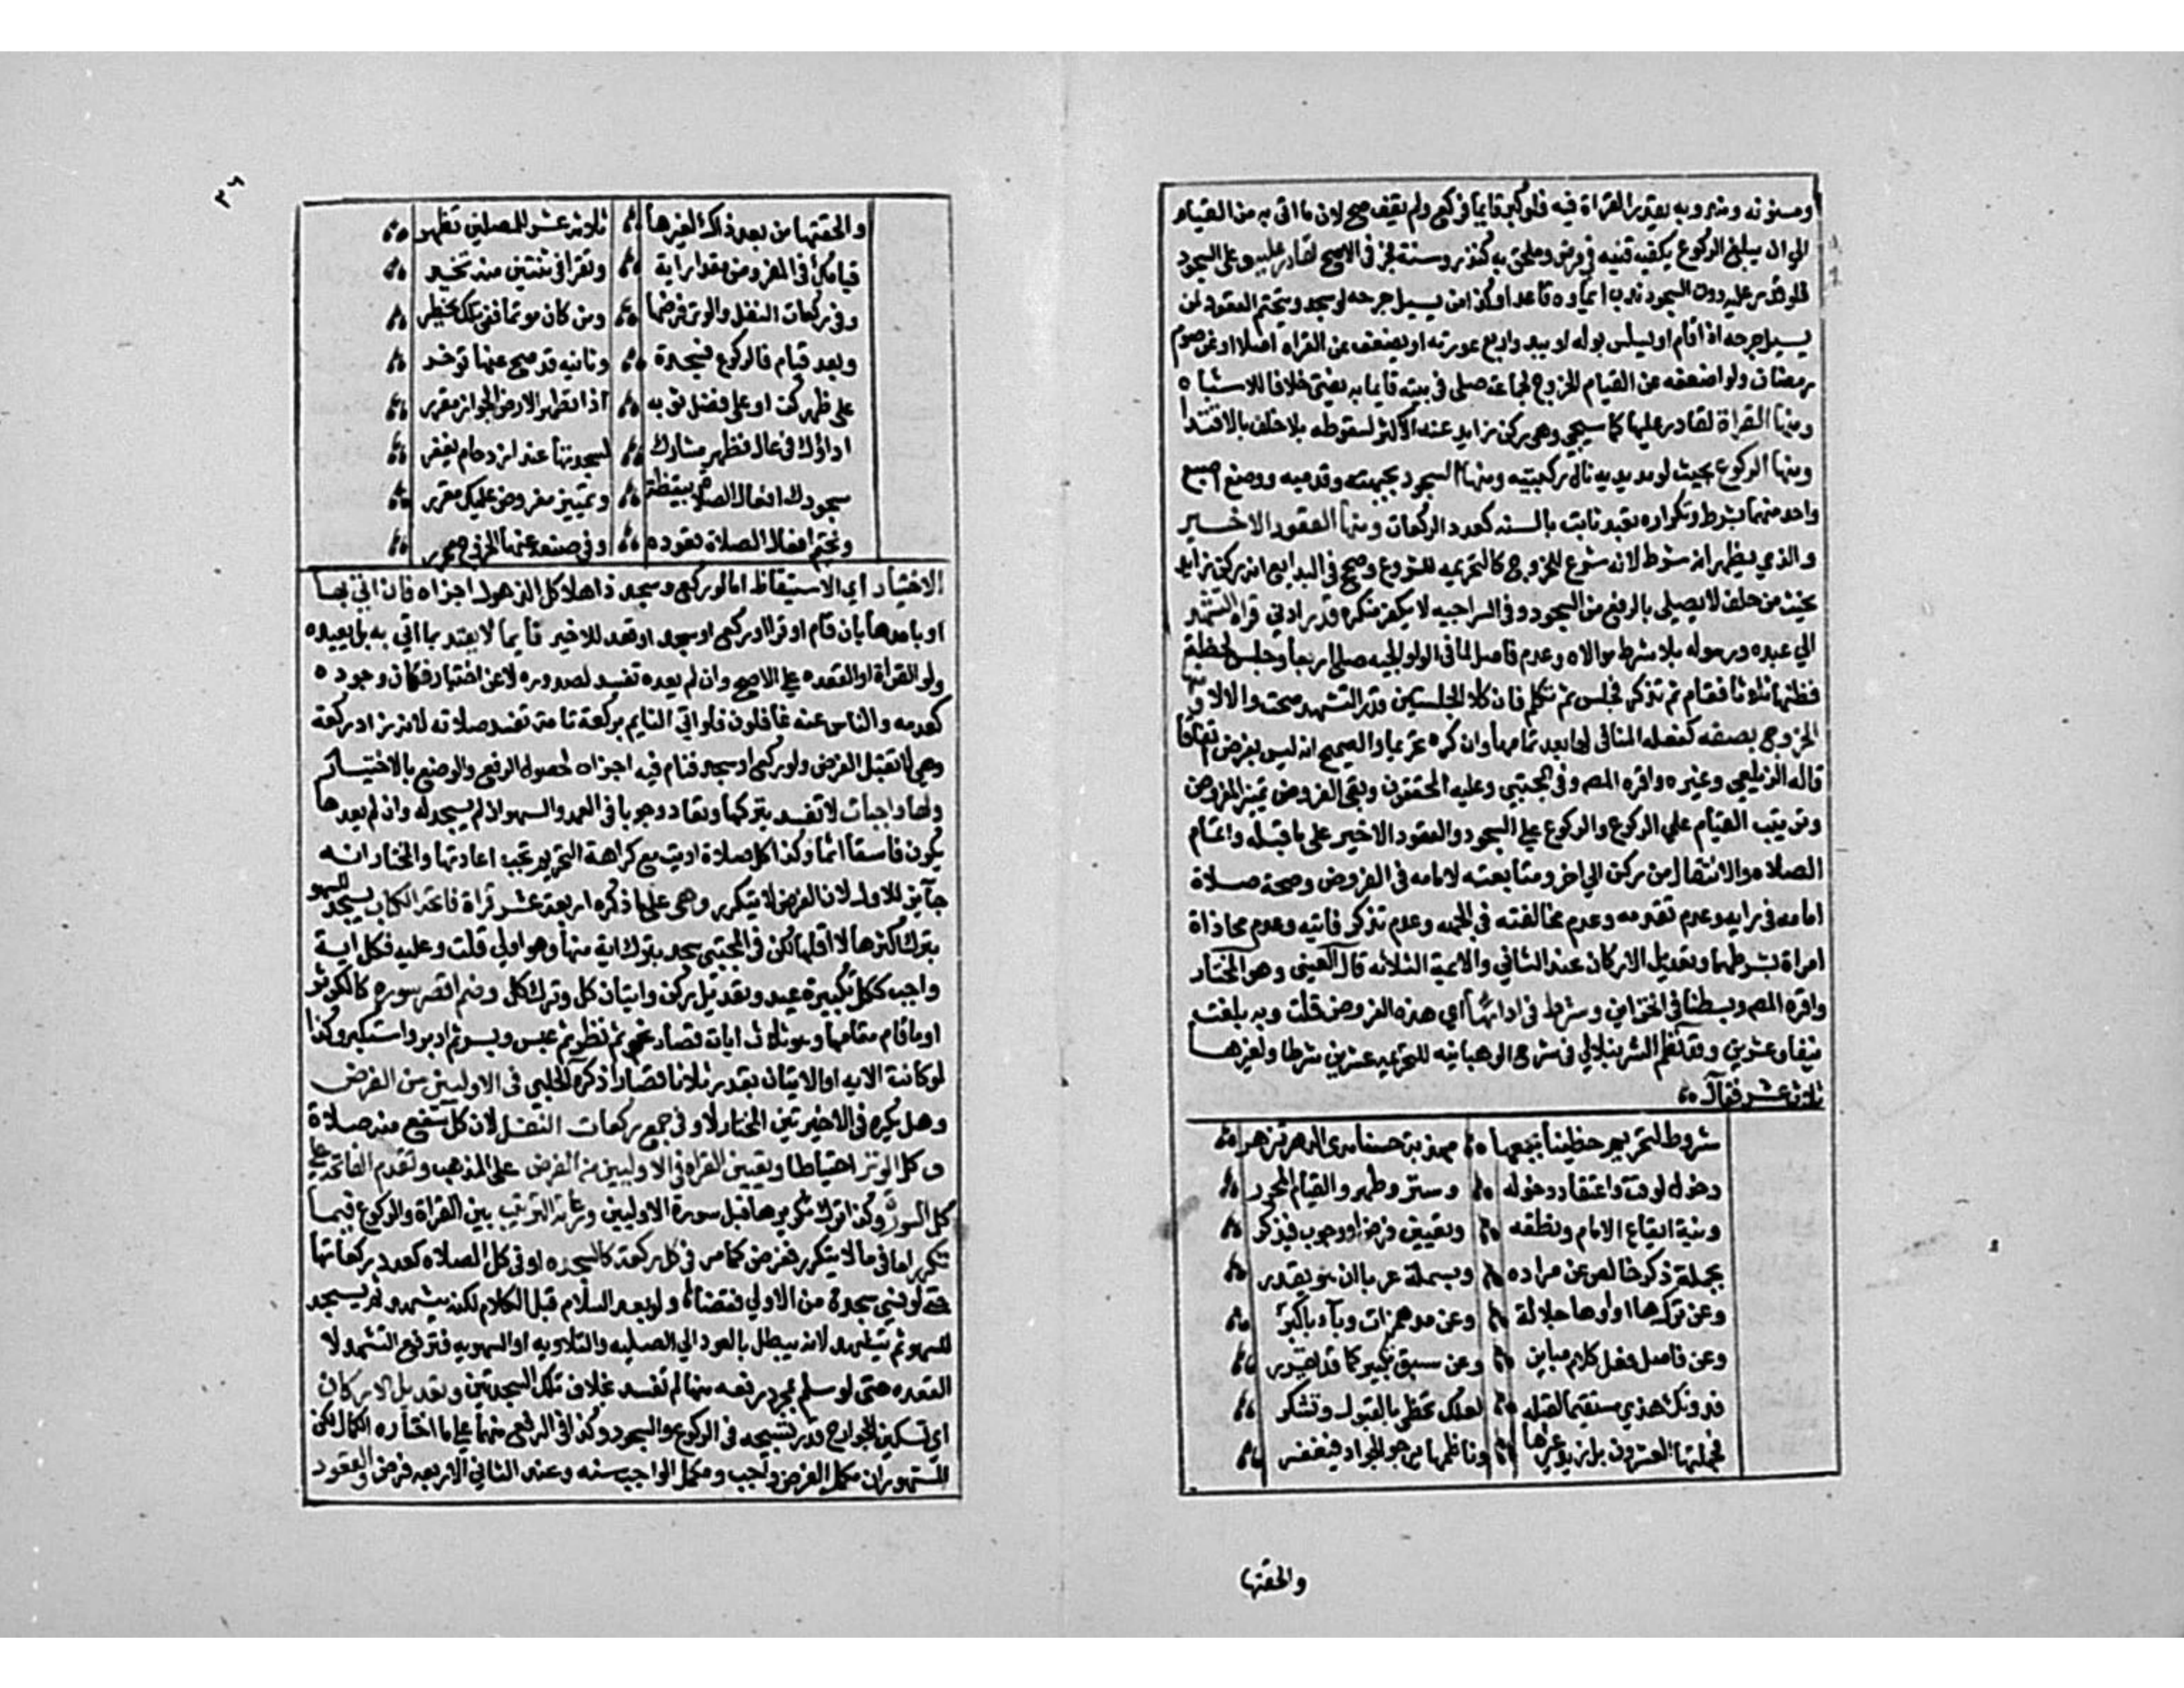 ومسنونه ومندوبه بقدر القراة فيه فلو كبر قايما فركع ولم يقف صح لان ما اتى به من القيام
الي ان يبلغ الركوع يكفيه قنيه في فرض وملحق به كنذر وسنة فجر في الاصح لقادر عليه وعلى السجود
فلو قدر عليه دون السجود ندب ايماوه قاعدا وكذا من يسيل جرحه لو سجد ويتحتم القعود لمن
يسيل جرحه اذا قام او يسلس بوله او يبدو اربع عورته او يضعف عن القراه اصلا او عن صوم
رمضان ولو اضعفه عن القيام الخروج لجماعة صلى في بيته قايما به يفتى خلافا للاشباه
ومنها القراة لقادر عليها كما سيجي وهي ركن زايد عند الاكثر لسقوطه بلا خلف بالاقتدا
ومنها الركوع بحيث لو مد يديه نال ركبتيه ومنها السجود بجبهته وقدميه ووضع اصبع
واحد منهما شرط وتكراره تعبد ثابت بالسنه كعدد الركعات ومنها القعود الاخير
والذي يظهر انه شرط لانه شرع للخروج كالتحريمه للشروع وصحح في البدايع انه ركن زايد
يحنث من حلف لا يصلي بالرفع من السجود وفي السراجيه لا يكفر منكره قدر ادنى قراة التشهد
الي عبده ورسوله بلا شرط موالاه وعدم فاصل لما في الولوالجيه صلى اربعا وجلس لحظة
فظنها ثلاثا فقام ثم تذكر فجلس ثم تكلم فان كلا الجلستين قدر التشهد صحت والا لا ومنها
الخروج بصنعه كفعله المنافي لها بعد تمامها وان كره تحريما والصحيح انه ليس بفرض اتفاقا
قاله الزيلعي وغيره واقره المص وفي المجتبي وعليه المحققون وبقي الفروض تمييز المفروض
وترتيب القيام علي الركوع والركوع علي السجود والقعود الاخير على ما قبله واتمام
الصلاه والانتقال من ركن الي اخر ومتابعته لامامه في الفروض وصحة صلاة
امامه في رايه وعدم تقدمه وعدم مخالفته في الجهه وعدم تذكر فايته وعدم محاذاة
امراة بشرطهما وتعديل الاركان عند الثاني والايمة الثلاثه قال العيني وهو المختار
واقره المص وبسطناه في الخزاين وشرط في ادايها اي هذه الفروض قلت وبه بلغت
نيفا وعشرين وقد نظم الشرنبلالي في شرح الوهبانيه للتحريمه عشرين شرطا ولغيرها
ثلاثة عشر فقال
شروط لتحريم حظيت بجمعها مهذبة حسنا مدى الدهر تزهر
دخول لوقت واعتقاد دخوله وستر وطهر والقيام المحرر
ونية اتباع الامام ونطقه وتعيين فرض او وجوب فيذكر
بجملة ذكر خالص عن مراده وبسملة عربا ان هو يقدر
وعن تركها او لها جلالة وعن مد همزات وبآء باكبر
وعن فاصل فعل كلام مباين وعن سبق تكبير كما قد اعتبر
فدونك هذي مستقيما لقبلة لعلك تحظى بالقبول وتشكر
فجملتها العشرون بل زيد غيرها وناظمها يرجو الجواد فيغفر
والحقتها
٣٦
والحقتها من بعد ذاك لغيرها ثلاثة عشر للمصلين تظهر
قيامك في المفروض مقدار اية وتقرا في ثنتين منه تخير
وفي ركعات النفل والوتر فرضها ومن كان موتما فعن تلك يحظر
وبعد قيام فالركوع فسجدة وثانيه قد صح عنها توخر
على ظهر كف او على فضل ثوبه اذا تطهر الارض الجواز مقرر
اداوك في عال فظهر مشارك لسجدتها عند ازدحام يغفر
سجودك افعال الصلاة بيقظة وتمييز مفروض عليك مقرر
ونختم افعال الصلاة قعوده وفي صنعه عنها الخروج محرر
الاختيار اي الاستيقاظ اما لو ركع وسجد ذاهلا كل الذهول اجزاه فان اتى بها
او باحدها بان قام او قرا او ركع او سجد او قعد للاخير نايما لا يعتد بما اتي به بل يعيده
ولو القراة او القعده علي الاصح وان لم يعده تفسد لصدوره لا عن اختيار فكان وجوده
كعدمه والناس عنه غافلون فلو اتي النايم بركعة تامه تفسد صلاته لانه زاد ركعة
وهي لا تقبل الفرض ولو ركع او سجد فنام فيه اجزاه لحصول الرفع والوضع بالاختيار
ولها واجبات لا تفسد بتركها وتعاد وجوبا في العمد والسهو ان لم يسجد له وان لم يعدها
يكون فاسقا اثما وكذا كل صلاة اديت مع كراهة التحريم تجب اعادتها والمختار انه
جابر للاول لان الفرض لا يتكرر وهي على ما ذكره اربعة عشر قراة فاتحة الكتاب يسجد للسهو
بترك اكثرها لا اقلها لكن في المجتبى يسجد بترك اية منها وهو اولي قلت وعليه فكل اية
واجب ككل تكبيرة عيد وتعديل ركن واتيان كل وترك كل وضم اقصر سوره كالكوثر
او ما قام مقامها وهو ثلاث ايات قصار نحو ثم نظر ثم عبس وبسر ثم ادبر واستكبر وكذا
لو كانت الايه او الايتان بقدر ثلاثا قصارا ذكره الحلبي في الاوليين من الفرض
وهل يكره في الاخيرتين المختار لا وفي جميع ركعات النفل لان كل شفع منه صلاة
وكل الوتر احتياطا وتعيين القراه في الاوليين من الفرض على المذهب وتقدم الفاتحة علي
كل السورة وكذا ترك تكريرها قبل سورة الاوليين ورعاية الترتيب بين القراة والركوع فيما
تكرر اما في ما لا يتكرر ففرض كما مر في كل ركعة كالسجده او في كل الصلاه كعدد ركعاتها
حتى لو نسي سجدة من الاولي قضاها ولو بعد السلام قبل الكلام لكنه يتشهد ثم يسجد
للسهو ثم يتشهد لانه يبطل بالعود الي الصلبيه والتلاويه او السهويه فترفع التشهد لا
القعده حتى لو سلم بمجرد رفعه منها لم تفسد بخلاف تلك السجدتين وتعديل الاركان
اي تسكين الجوارح قدر تسبيحه في الركوع والسجود وكذا في الرفع منهما علي ما اختاره الكمال لكن
المشهور ان مكمل الفرض واجب ومكمل الواجب سنه وعند الثاني الاربعه فرض والقعود